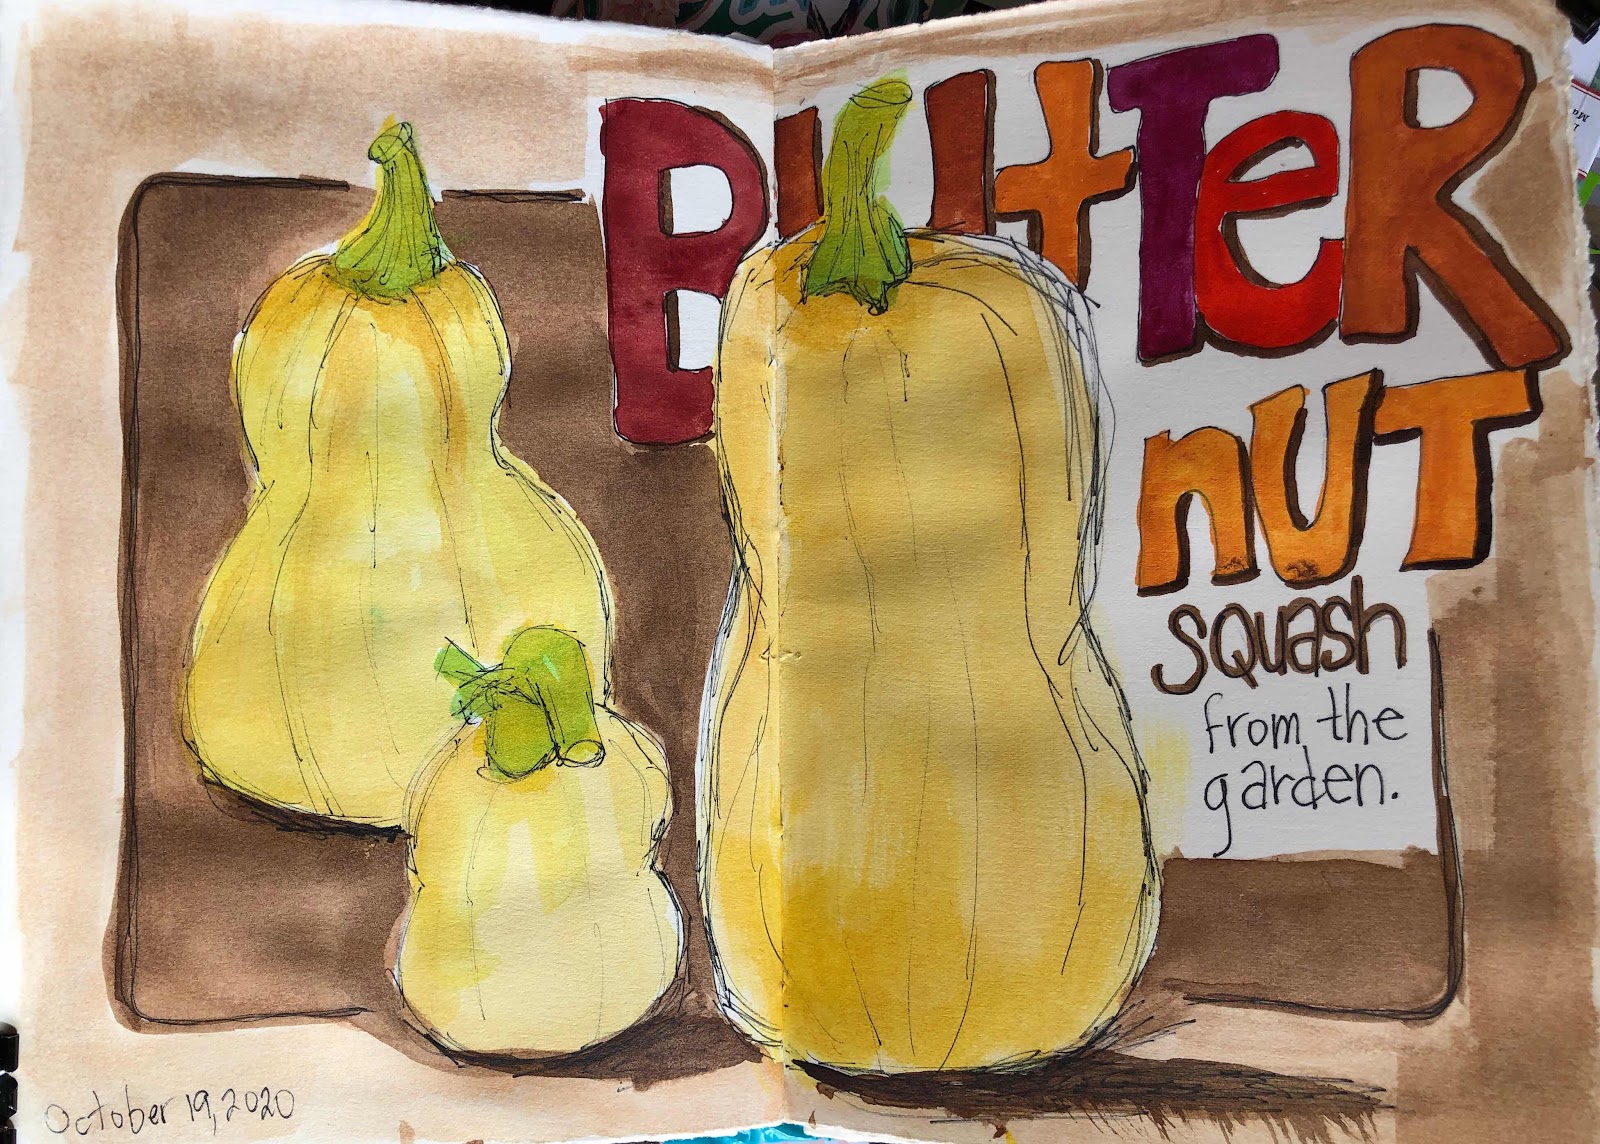 BUtTeR
nUT
squash
from the
garden.
October 19, 2020